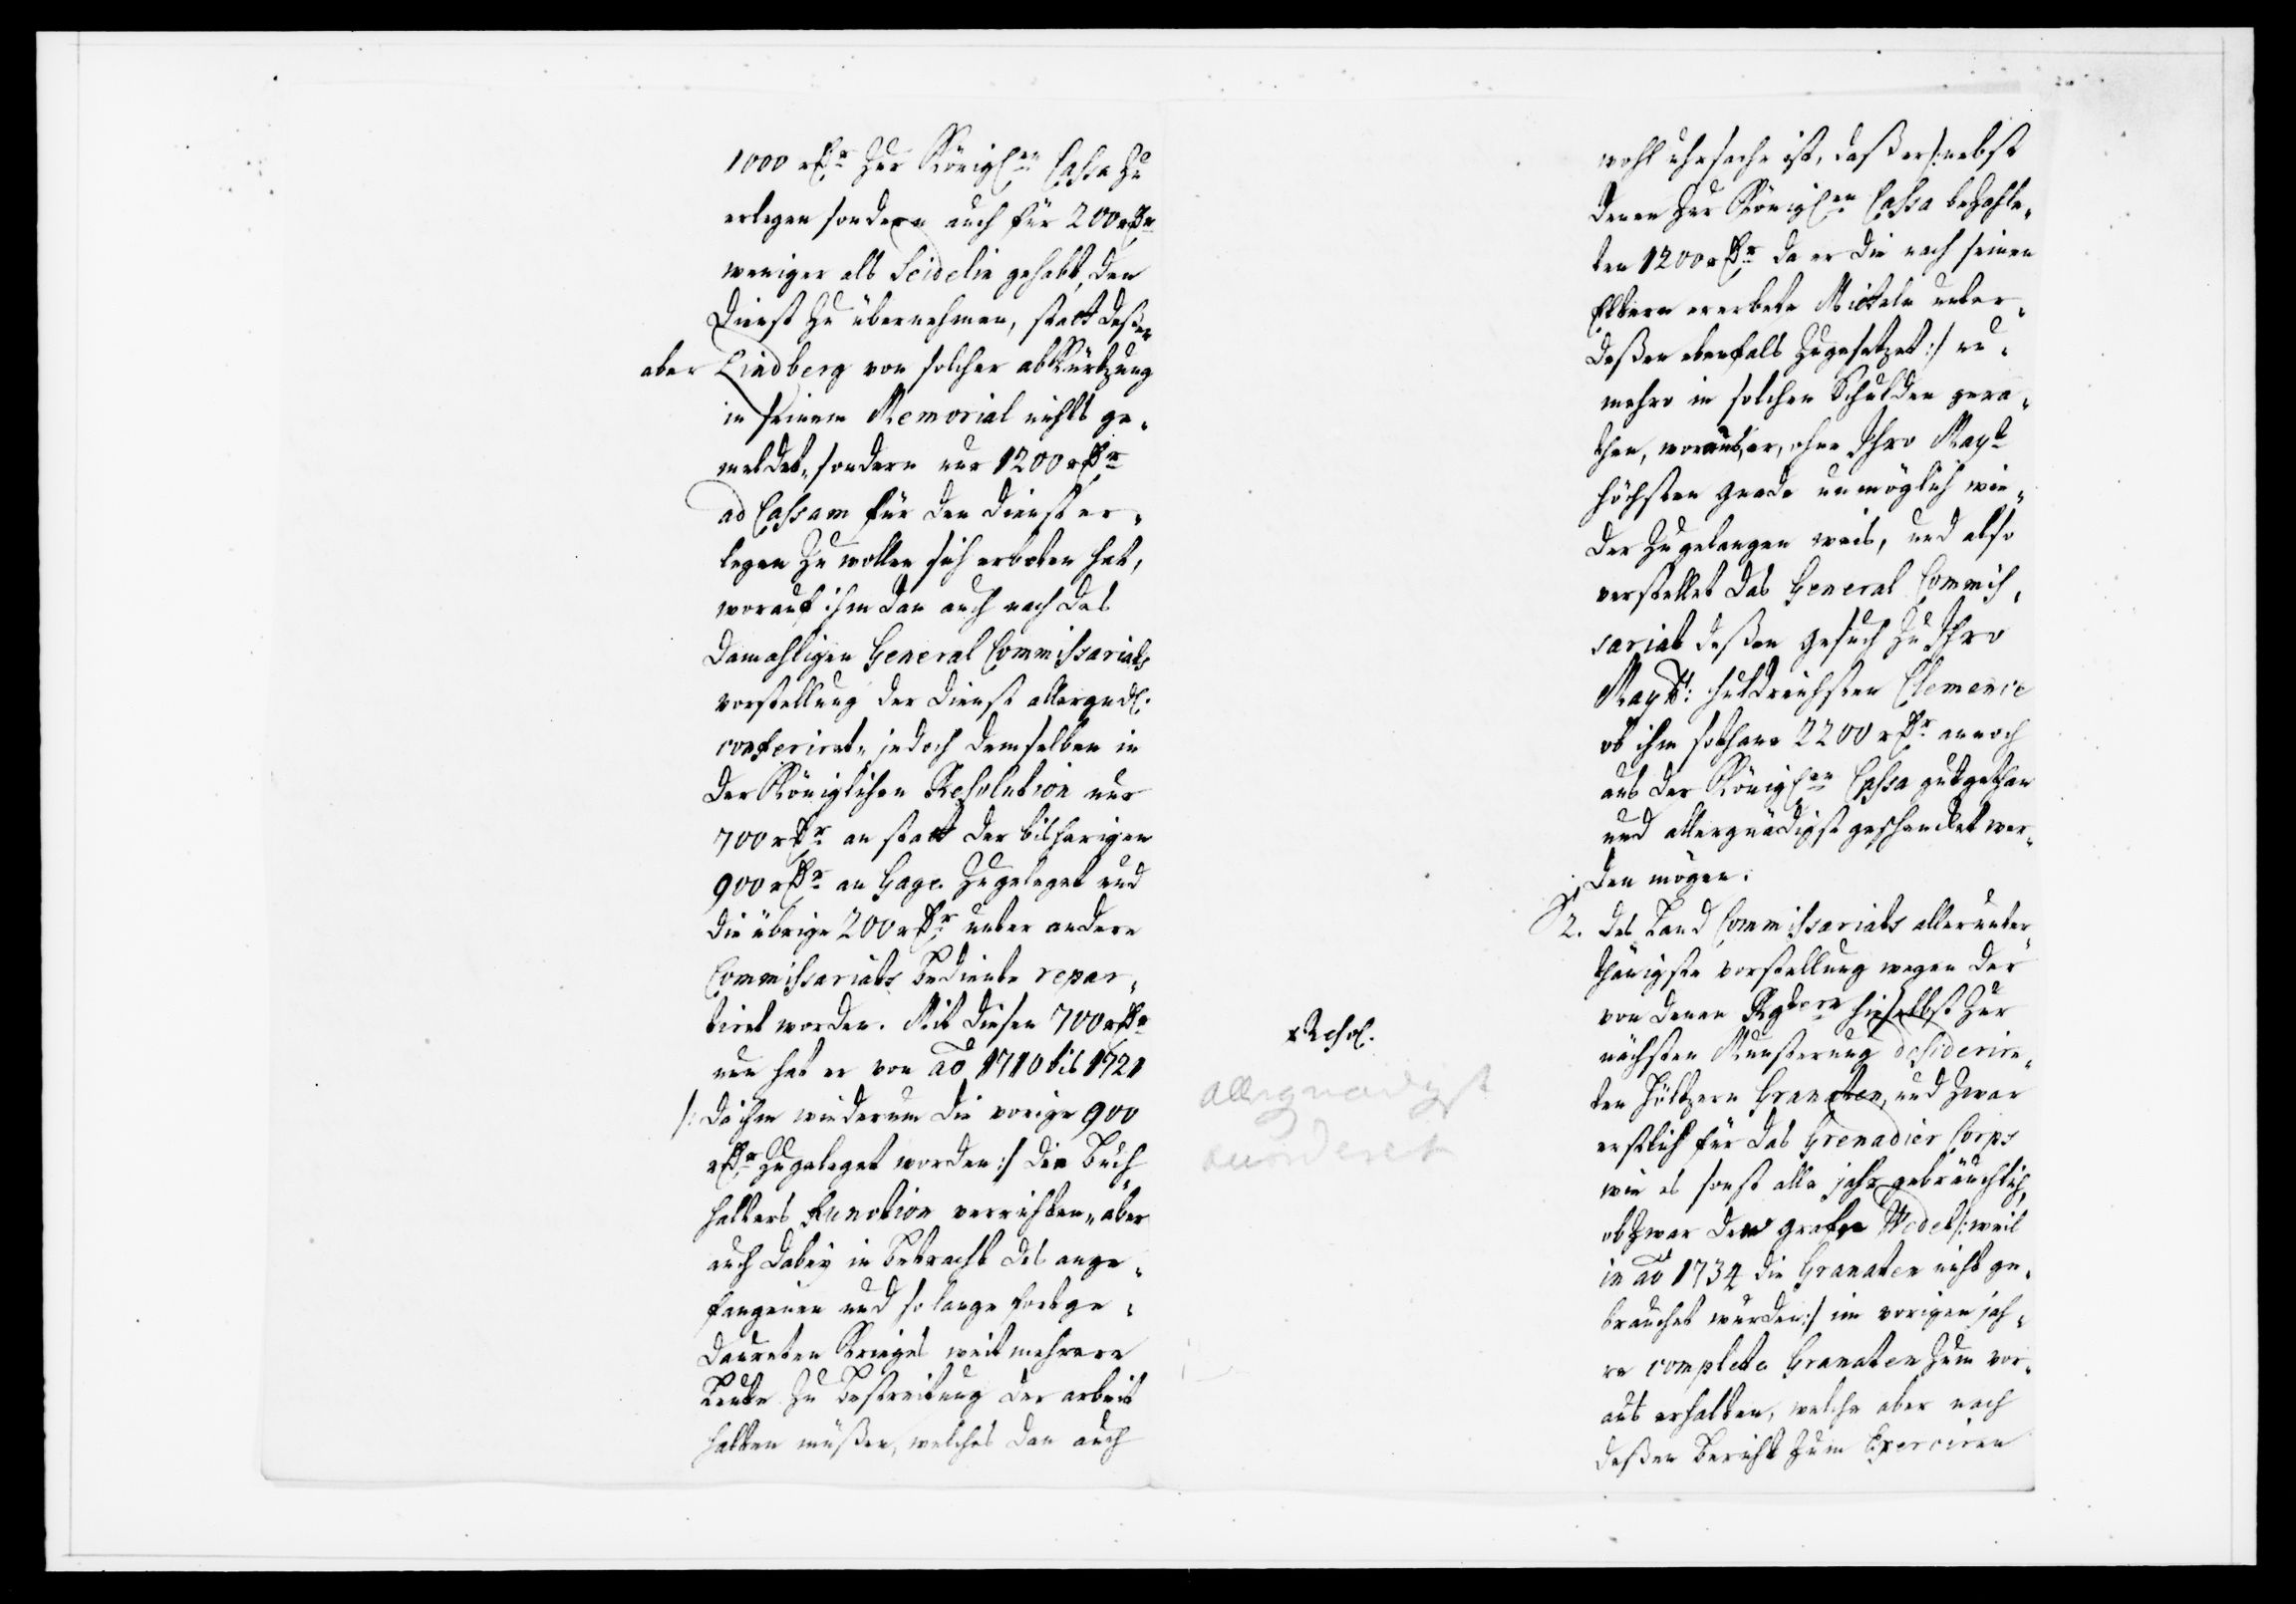 1000 rdr zur Königlen Cassa zu
erlegen sondern auch für 200 rdr
weniger als Seidelin gehabt, den
Dienst zu übernehmen, statt deßen
aber Lindberg von solcher abkürtzung
in seinem Memorial nichts ge„
meldet, sondern nur 1200 rdr
ad Cassam für den dienst er„
legen zu wollen sich erboten hat,
worauf ihm dan auch nach des
damahligen General Commissariats
vorstellung der dienst allergndl.
conferiret, jedoch demselben in
der Königlichen Resolution nur
700 rdr an statt der bisherigen
900 rdr an Gage zugeleget und
die übrige 200 rdr unter andere
Commissariats bediente repar„
tiret worden. Mit diesen 700 rdr
nun hat er von ao 1710 bis 1721
/: da ihm wiederum die vorige 900
rdr zugeleget worden :/ die Buch„
halters Function verrichten, aber
auch dabey in betracht des ange„
fangenen und so lange fortge„
daureten Krieges weit mehrere
Leute zu bestreitung der arbeit
halten müßen, welches dan auch
Resol.
allergnädigst
accorderet
wohl uhrsache ist, daß er /: nebst
denen zur Königlen Cassa bezahle„
ten 1200 rdr da er die nach seinen
Eltern ererbete Mittele unter„
deßen ebenfals zugesetzet :/ nu„
mehro in solchen Schulden gera„
then, woraus er, ohne Ihro Mayt
höchsten gnade unmöglich wie„
der zu gelangen weis, und also
verstellet das General Commis„
sariat deßen gesuch zu Ihro
Maytt: huldreichsten Clemence
ob ihm sothane 2200 rdr annoch
aus der Königlen Cassa gutgethan
und allergnädigst geschencket wer„
den mögen.
2. des Land Commissariats allerunter„
thänigste vorstellung wegen der
von denen Rgtern hieselbst zur
nächsten Munsterung desiderire„
ten höltzern Granaten, und zwar
erstlich für das Grenadier Corps
wie es sonst alle jahr gebräuchlich,
obzwar dem grafen Wedel /: weil
in ao 1734 die Granaten nicht ge„
brauchet wurden :/ im vorigen jah„
re complete Granaten zum vor„
aus erhalten, welche aber nach
deßen bericht zum Exerciren